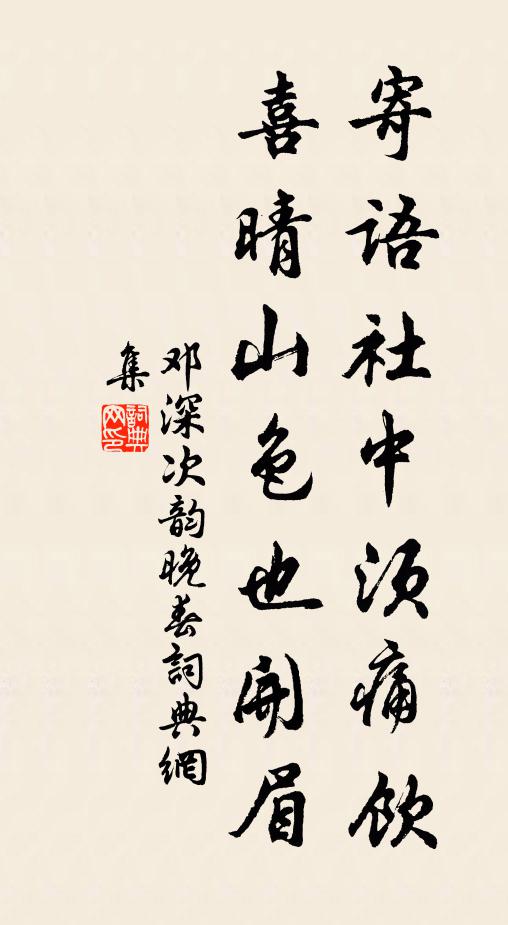 寄语社中须痛饮
喜晴山色也開眉
邓深次韵晚春詞典網
集
詞典网印